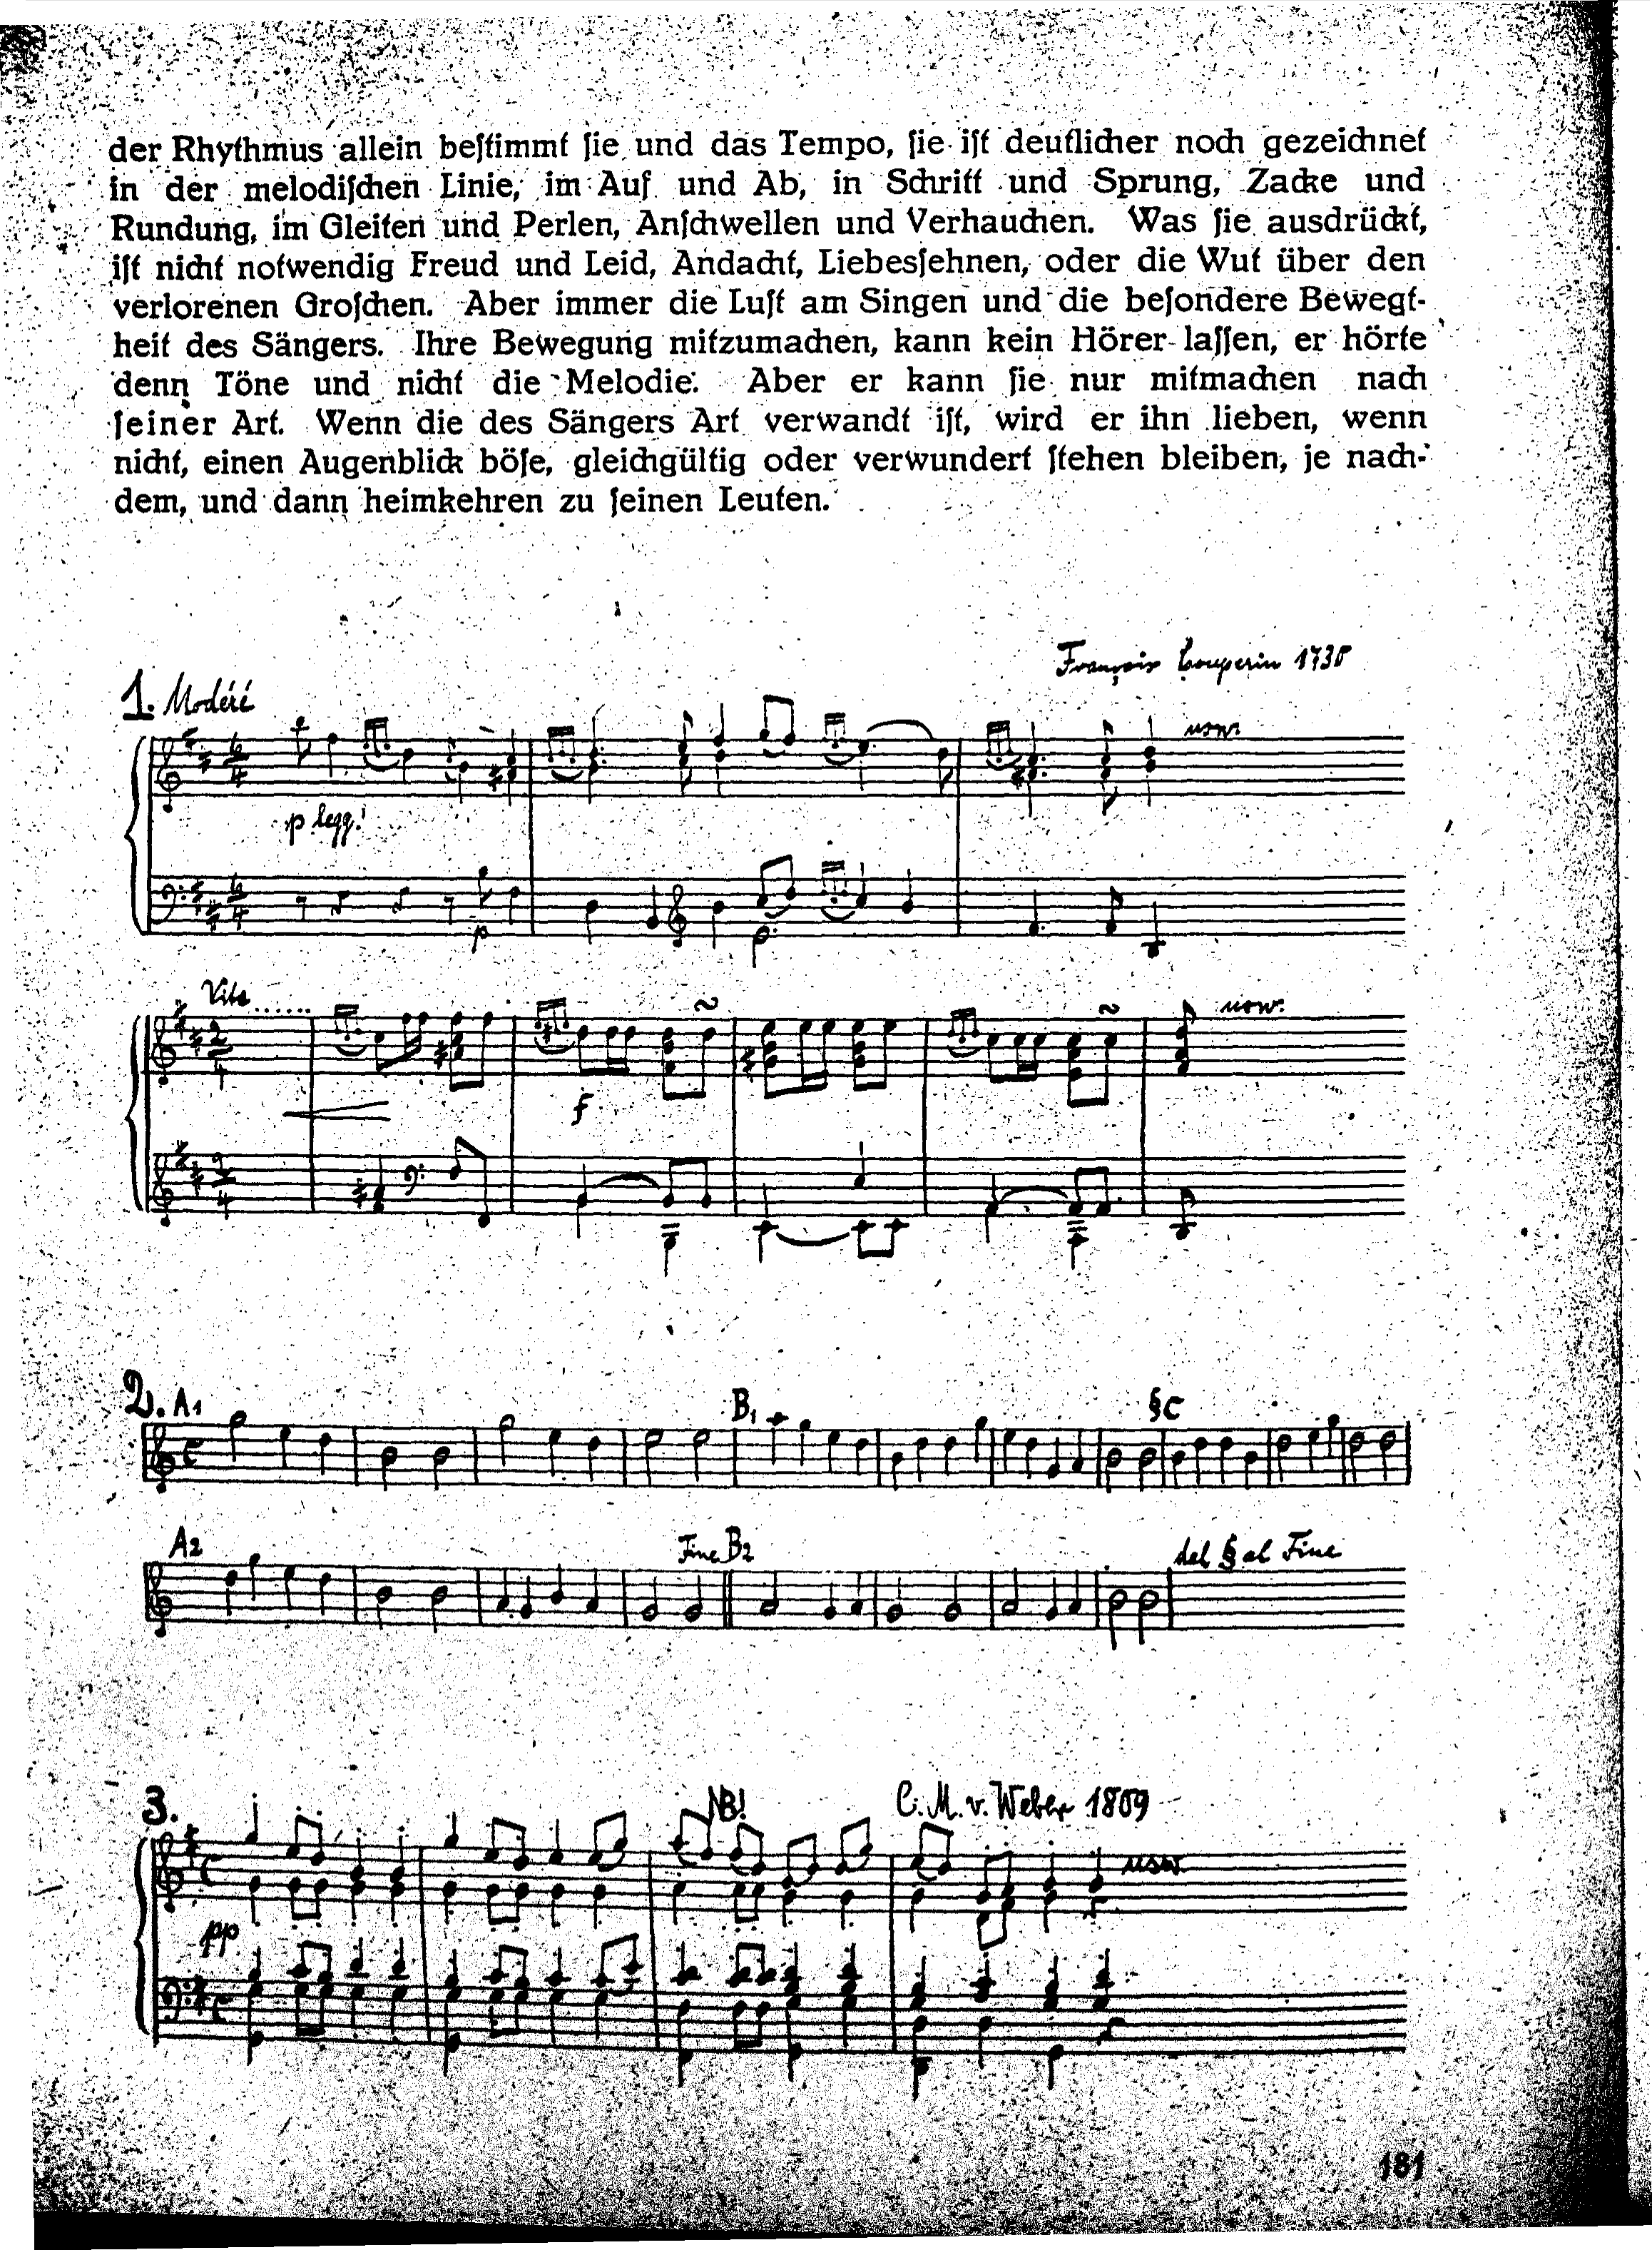 der Rhythmus allein beſtimmt ſie und das Tempo, ſie iſt deutlicher noch gezeichnet
in der melodiſchen Linie, im Auf und Ab, in Schritt und Sprung, Zacke und
Rundung, im Gleiten und Perlen, Anſchwellen und Verhauchen. Was ſie ausdrückt,
iſt nicht notwendig Freud und Leid, Andacht, Liebesſehnen, oder die Wut über den
verlorenen Groſchen. Aber immer die Luſt am Singen und die beſondere Bewegt-
heit des Sängers. Ihre Bewegung mitzumachen, kann kein Hörer laſſen, er hörte
denn Töne und nicht die Melodie. Aber er kann ſie nur mitmachen nach
ſeiner Art. Wenn die des Sängers Art verwandt iſt, wird er ihn lieben, wenn
nicht, einen Augenblick böſe, gleichgültig oder verwundert ſtehen bleiben, je nach-
dem, und dann heimkehren zu ſeinen Leuten.
François Couperin 1730
1. Modéré
usw.
6 4
p legg.
6 4
p
Vite......
usw.
2 4
f
2 4
2. A1 B1 §C
A2 Fine B2 del § al Fine
3. NB! C. M. v. Weber 1809
usw
pp
181